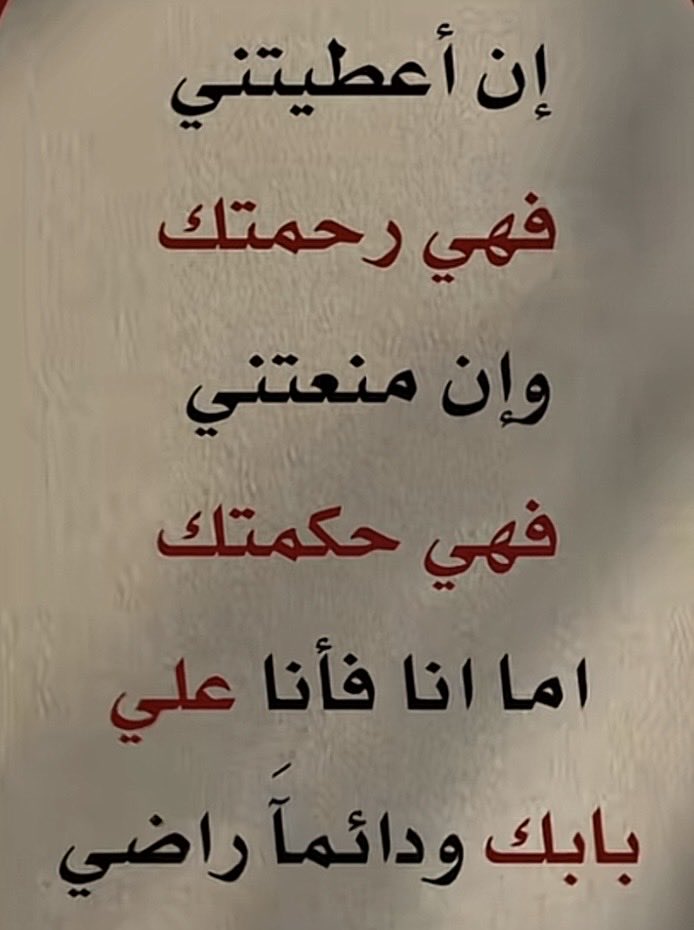 إن أعطيتني
فهي رحمتك
وإن منعتني
فهي حكمتك
اما انا فأنا علي
بابك ودائمآَ راضي